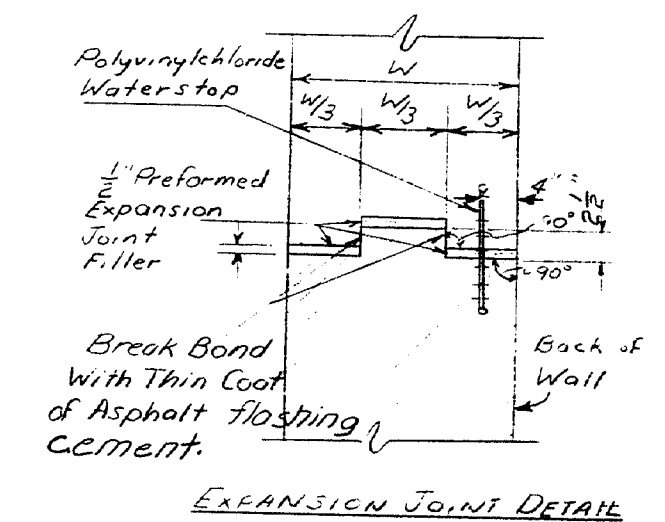 Polyvinylchloride
Waterstop
W
W/3 W/3 W/3
1/2" Preformed
Expansion
Joint
Filler
4"±
90°
90°
Break Bond
With Thin Coat
of Asphalt flashing
Cement.
Back of
Wall
EXPANSION JOINT DETAIL